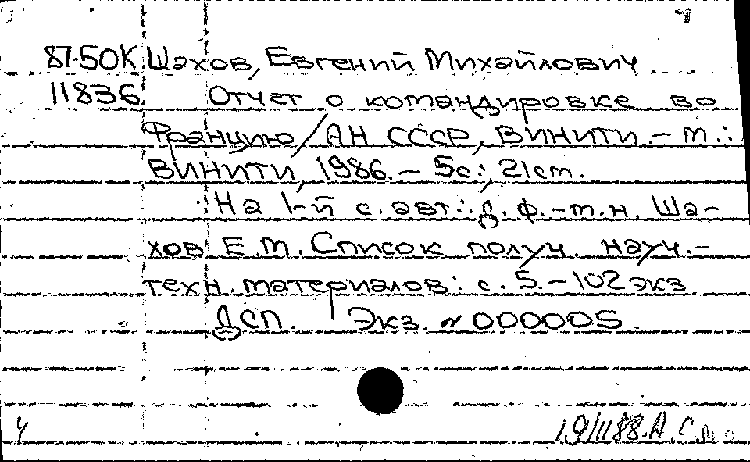 87-50К Шахов, Евгений Михайлович
11836 Отчет о командировке во
Францию / АН СССР, ВИНИТИ. - М.:
ВИНИТИ, 1986. - 5с.; 21см.
На 1-й с. авт.: д. ф.-м. н. Ша-
хов Е.М. Список получ. науч.-
техн. материалов: с. 5. - 102 экз
ДСП. Экз. № 000005.